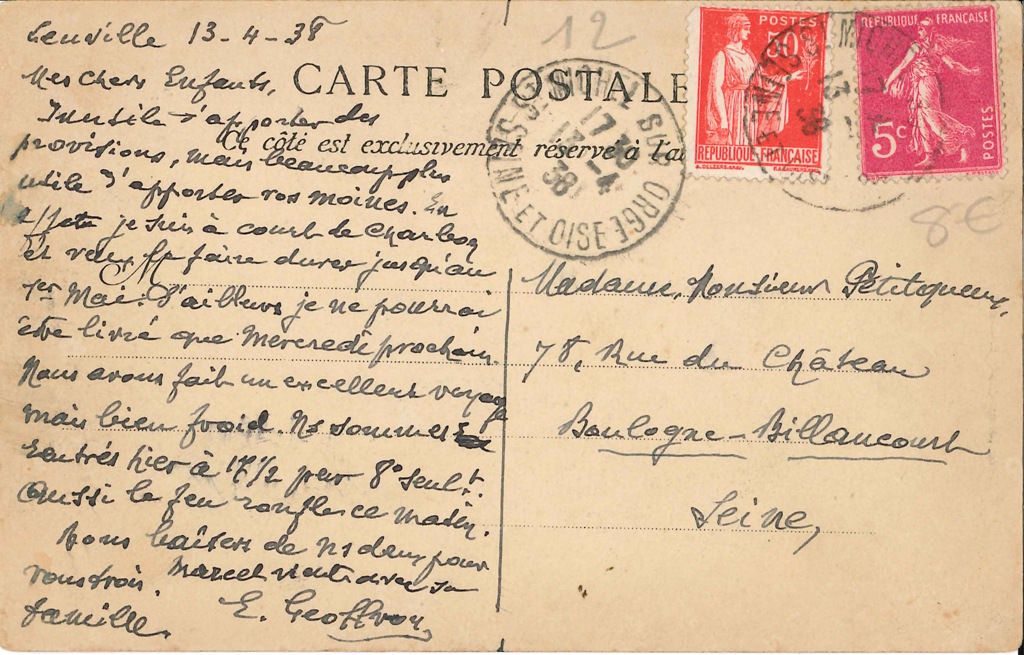 Leuville 13-4-38
Mes chers Enfants,
Inutile d'apporter des
provisions, mais beaucoup plus
utile d'apporter vos moines. En
effet je suis à court de charbon
et veux le faire durer jusqu'au
1er Mai. D'ailleurs je ne pourrai
être livré que Mercredi prochain.
Nous avons fait un excellent voyage
mais bien froid. Ns sommes
rentrés hier à 17 1/2 par 8° seult.
aussi le feu ronfle ce matin.
Bons baisers de ns deux pour
vous trois. Marcel avec sa
famille.
E. Geoffroy
CARTE POSTALE
Ce côté est exclusivement réservé à l'a
12
ST MICHEL S/S ORGE
17 30
13 -4
38
SEINE ET OISE
POSTES
50c
REPUBLIQUE FRANÇAISE
REPUBLIQUE FRANÇAISE
5c
POSTES
8 €
Madame, Monsieur Petitqueux,
78, Rue du Château
Boulogne-Billancourt
Seine,